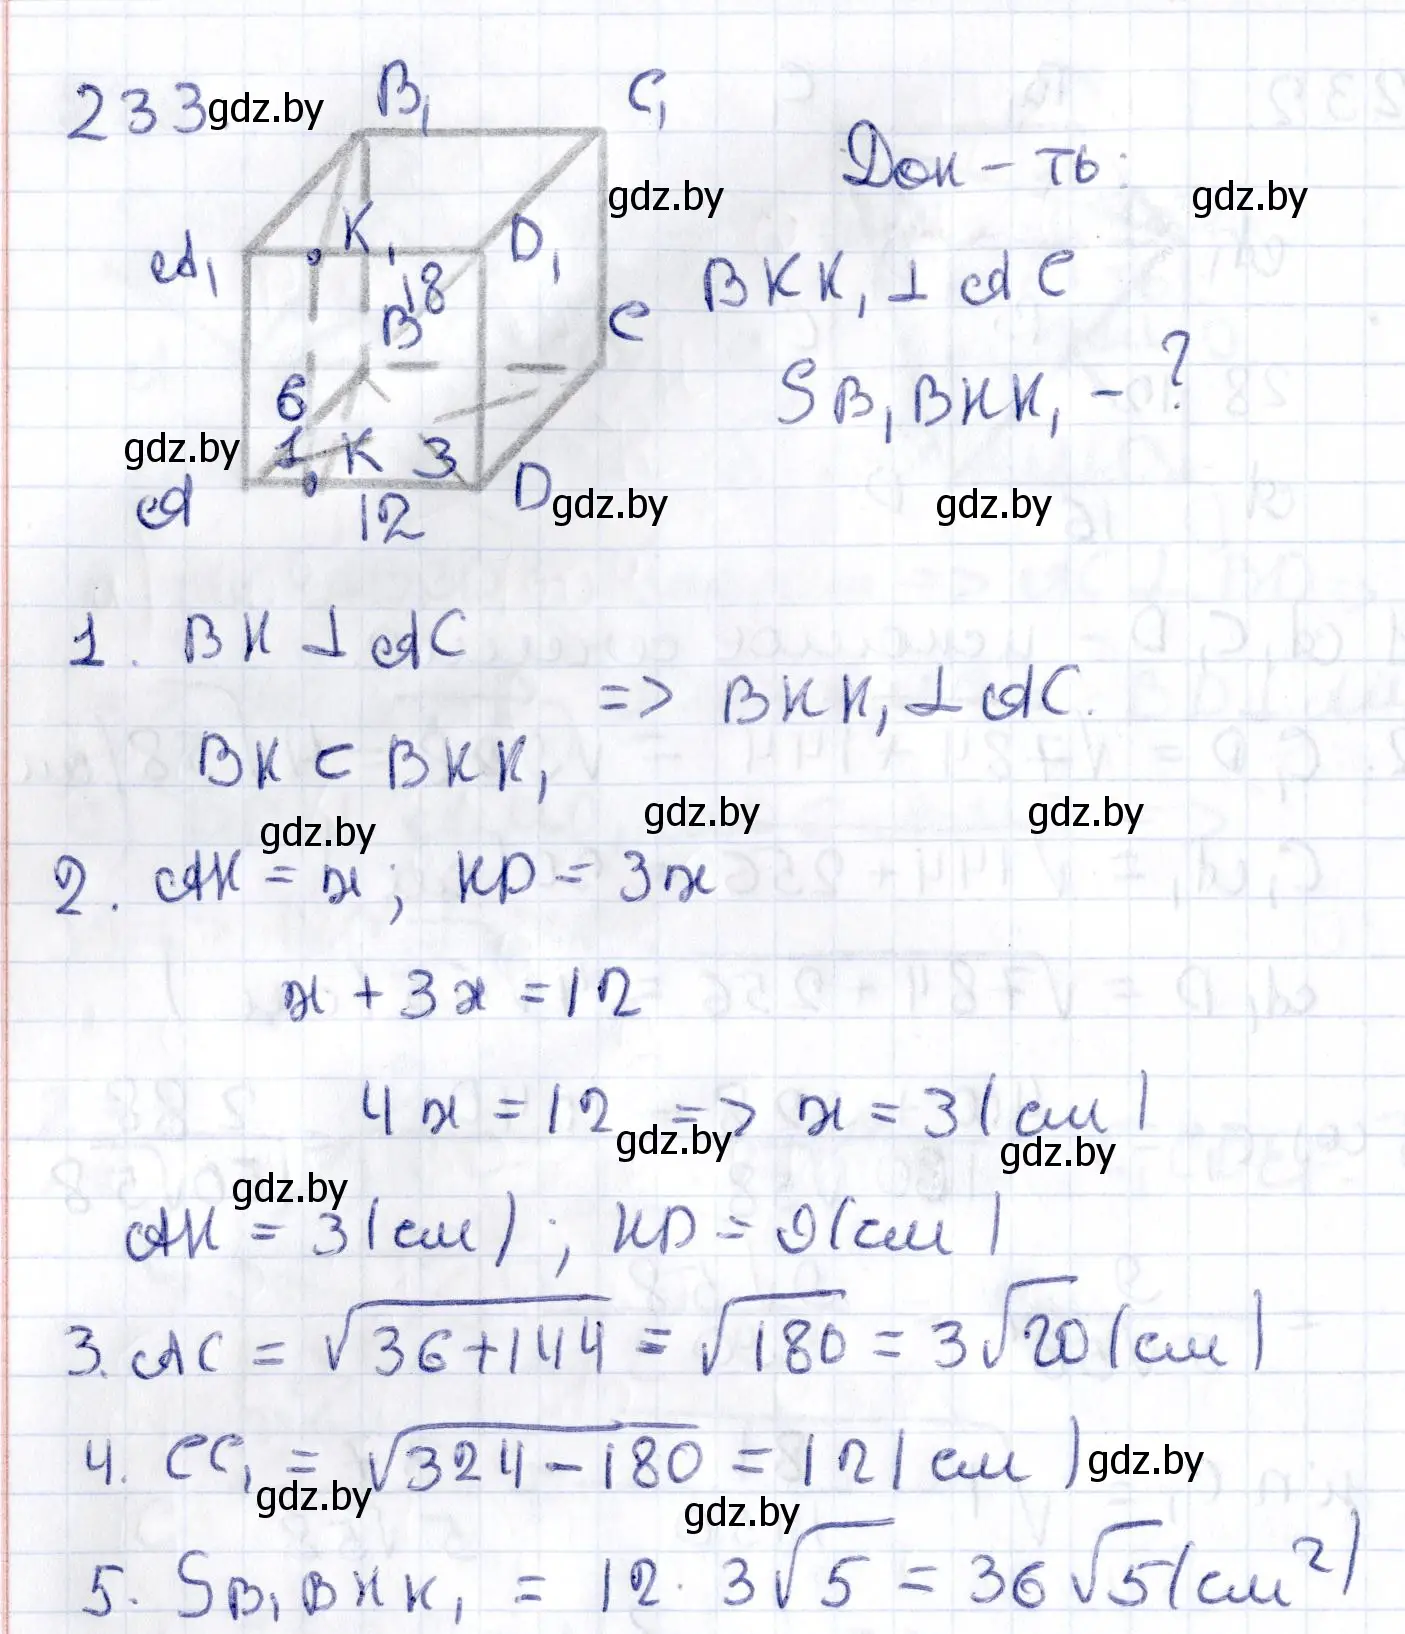 233
gdz.by
B₁
C₁
Док-ть:
gdz.by
gdz.by
A₁
K₁
D₁
BKK₁ ⊥ AC
18
B
C
S B₁BKK₁ - ?
6
gdz.by
1
K
3
A
12
D
gdz.by
gdz.by
1. BK ⊥ AC
=> BKK₁ ⊥ AC.
BK ⊂ BKK₁
gdz.by
gdz.by
gdz.by
2. AK = x; KD = 3x
x + 3x = 12
4x = 12 => x = 3 (см)
gdz.by
gdz.by
gdz.by
AK = 3 (см); KD = 9 (см)
3. AC = √36+144 = √180 = 3√20 (см)
4. CC₁ = √324-180 = 12 (см)
gdz.by
gdz.by
gdz.by
5. S B₁BKK₁ = 12 · 3√5 = 36√5 (см²)